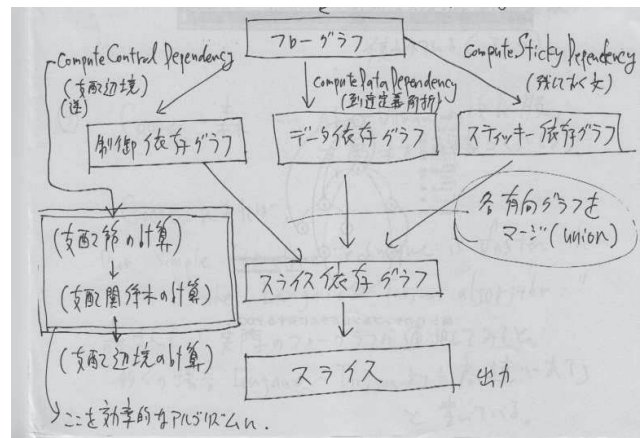 フローグラフ
ComputeControlDependency
(支配辺境)
(逆)
ComputeDataDependency
(到達定義解析)
ComputeStickyDependency
(残しておく文)
制御依存グラフ
データ依存グラフ
スティッキー依存グラフ
各有向グラフを
マージ(union)
(支配節の計算)
(支配関係木の計算)
(支配辺境の計算)
スライス依存グラフ
スライス
出力
ここを効率的なアルゴリズムに.